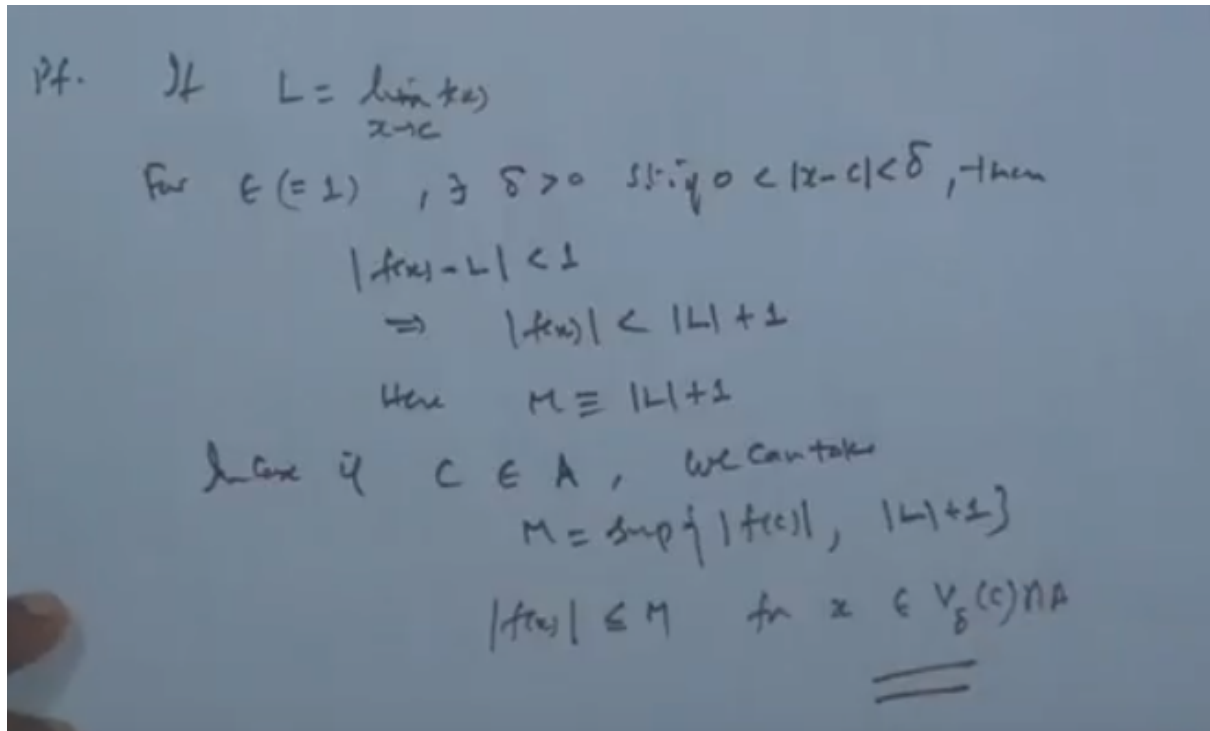 Pf. If L = lim f(x)
x→c
For ε (= 1) , ∃ δ > 0 s.t. if 0 < |x - c| < δ , then
|f(x) - L| < 1
⇒ |f(x)| < |L| + 1
Here M ≡ |L| + 1
In Case if C ∈ A , we can take
M = Sup{ |f(c)|, |L| + 1}
|f(x)| ≤ M for x ∈ V_δ(c) ∩ A